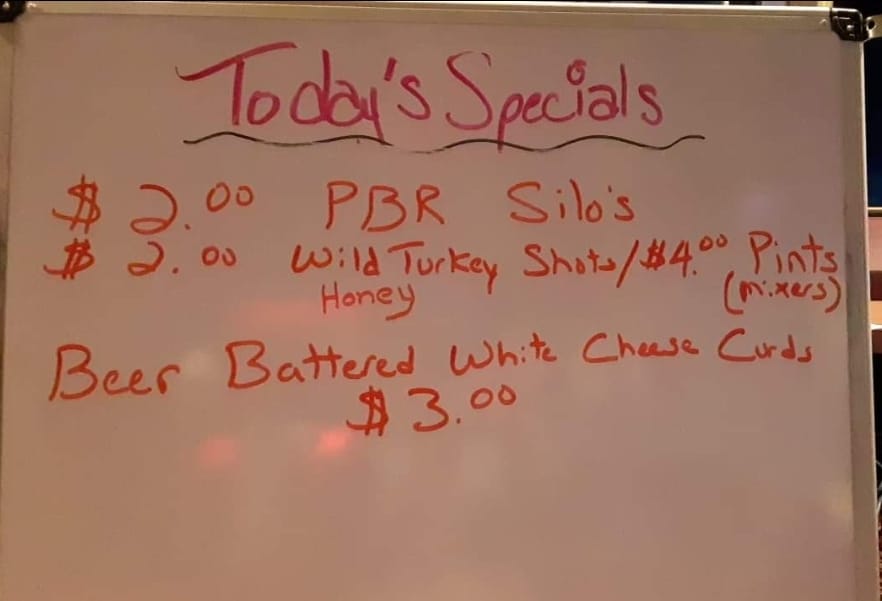 Today's Specials
$2.00 PBR Silo's
$2.00 Wild Turkey Shots/$4.00 Pints
Honey (mixers)
Beer Battered White Cheese Curds
$3.00